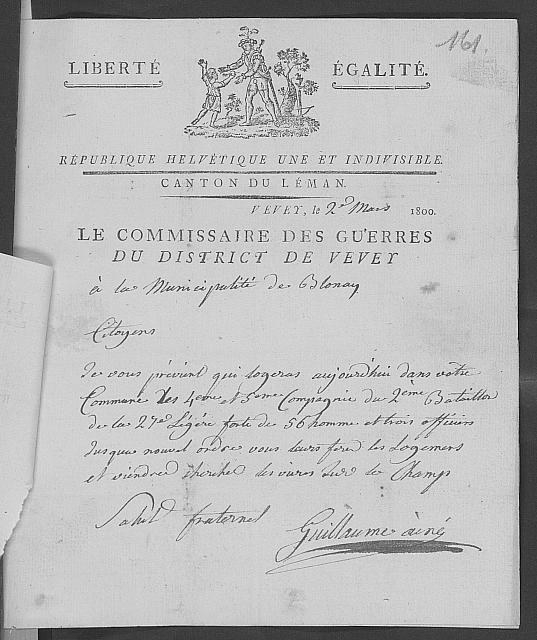 161.
LIBERTÉ ÉGALITÉ.
RÉPUBLIQUE HELVÉTIQUE UNE ET INDIVISIBLE.
CANTON DU LÉMAN.
VEVEY, le 2e Mars 1800.
LE COMMISSAIRE DES GUERRES
DU DISTRICT DE VEVEY
à la Municipalité de Blonay
Citoyens
Je vous prévient qui logeras aujourdhui dans votre
Commune les 4eme et 5eme Compagnie du 2ème Bataillon
de la 27e Légére forte de 56 homme et trois officiers
Jusqua nouvel ordre vous leurs feré les Logemens
et viendres cherché les vivres sur le Champs
Salut fraternel
Guillaume ainé